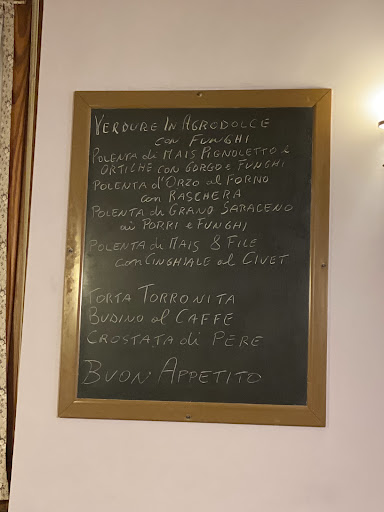 VERDURE IN AGRODOLCE
con FUNGHI
POLENTA di MAIS PIGNOLETTO e
ORTICHE con GORGO e FUNGHI
POLENTA d'ORZO al FORNO
con RASCHERA
POLENTA di GRANO SARACENO
ai PORRI e FUNGHI
POLENTA di MAIS 8 FILE
con CINGHIALE al CIVET
TORTA TORRONITA
BUDINO al CAFFE
CROSTATA di PERE
BUON APPETITO